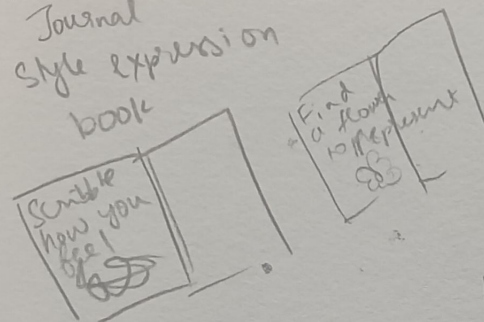 Journal
style expression
book
Scribble
how you
feel
Find
a flower
to represent